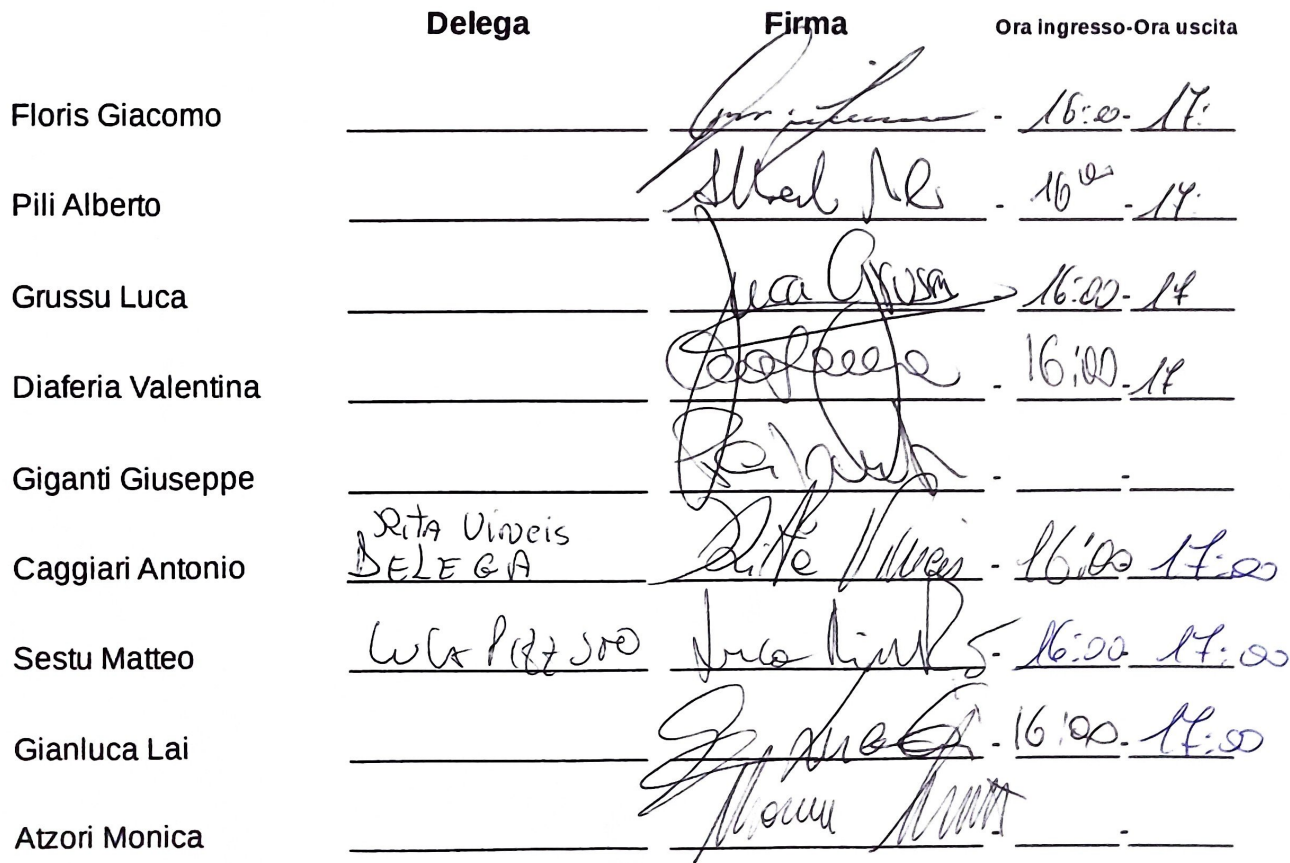 Delega Firma Ora ingresso-Ora uscita
Floris Giacomo - 16:00 - 17:
Pili Alberto - 16 00 - 17:
Grussu Luca Luca Grussu 16:00 - 17
Diaferia Valentina - 16:00 - 17
Giganti Giuseppe - -
Rita Vineis
Caggiari Antonio DELEGA Rita Vineis - 16:00 17:00
Sestu Matteo Luca - 16:00 17:00
Gianluca Lai - 16:00 - 17:00
Atzori Monica Monica -